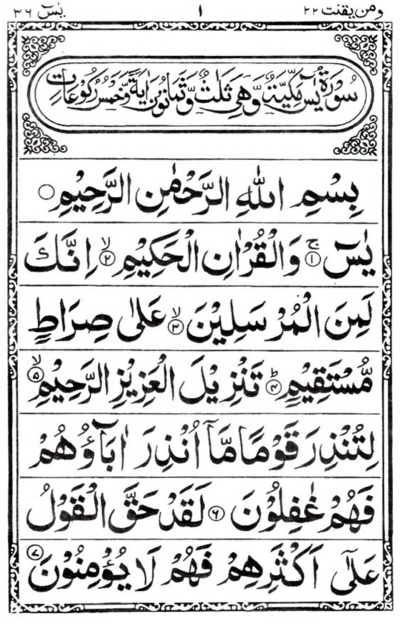 ومن یقنت ۲۲ ۱ یٰسٓ ۳۶
سُوْرَةُ يٰسٓ مَكِّيَّةٌ وَّهِيَ ثَلٰثٌ وَّثَمَانُوْنَ اٰيَةً وَّخَمْسُ رُكُوْعَاتٍ
بِسْمِ اللّٰهِ الرَّحْمٰنِ الرَّحِيْمِ ۝
يٰسٓ ۚ﴿۱﴾ وَالْقُرْاٰنِ الْحَكِيْمِ ۙ﴿۲﴾ اِنَّكَ
لَمِنَ الْمُرْسَلِيْنَ ۙ﴿۳﴾ عَلٰى صِرَاطٍ
مُّسْتَقِيْمٍ ؕ﴿۴﴾ تَنْزِيْلَ الْعَزِيْزِ الرَّحِيْمِ ۙ﴿۵﴾
لِتُنْذِرَ قَوْمًا مَّاۤ اُنْذِرَ اٰبَآؤُهُمْ
فَهُمْ غٰفِلُوْنَ ﴿۶﴾ لَقَدْ حَقَّ الْقَوْلُ
عَلٰۤى اَكْثَرِهِمْ فَهُمْ لَا يُؤْمِنُوْنَ ﴿۷﴾